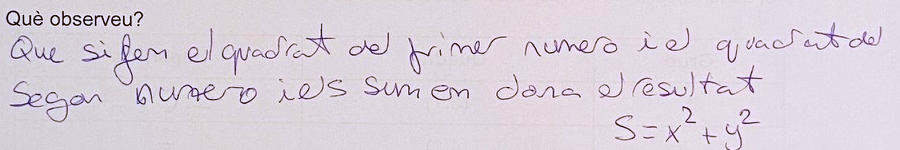 Què observeu?
Que si fem el quadrat del primer numero i el quadrat del
Segon numero i els sumem dona el resultat
S=x²+y²